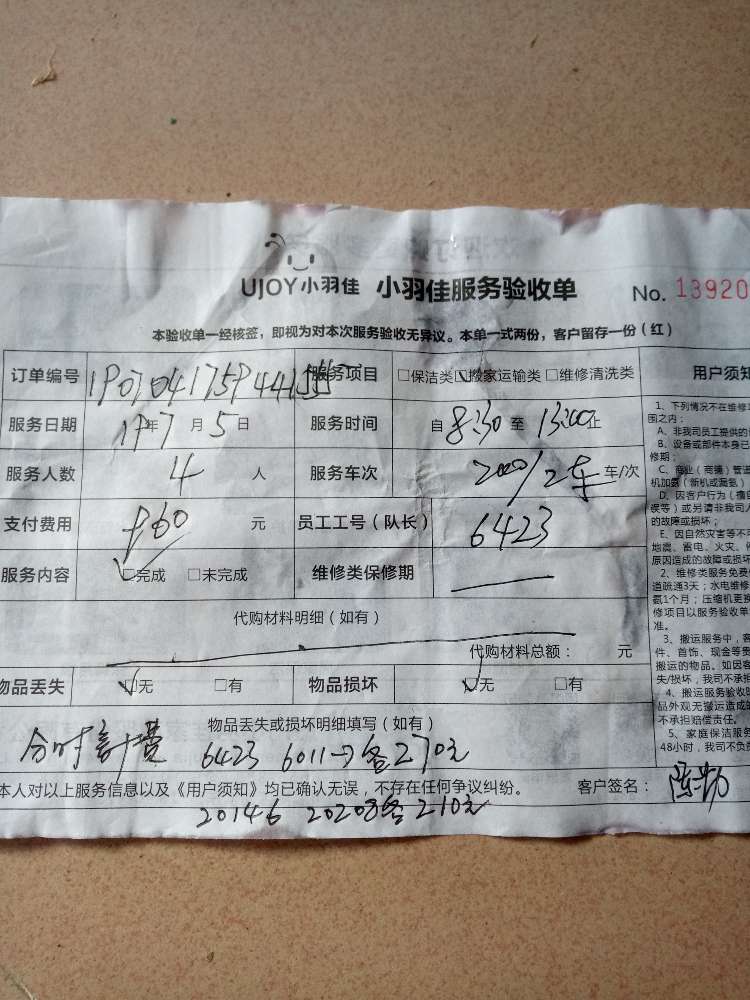 UJOY小羽佳 小羽佳服务验收单 No. 13920
本验收单一经核签，即视为对本次服务验收无异议。本单一式两份，客户留存一份（红）
订单编号 190704175944155 服务项目 □保洁类 ☑搬家运输类 □维修清洗类 用户须知
服务日期 19年7月5日 服务时间 自 8:30 至 13:00止
服务人数 4 人 服务车次 2000/2车 车/次
支付费用 960 元 员工工号（队长） 6423
服务内容 ☑完成 □未完成 维修类保修期 —
代购材料明细（如有）
代购材料总额： 元
物品丢失 ☑无 □有 物品损坏 ☑无 □有
物品丢失或损坏明细填写（如有）
分时计费 6423 6011→各270元
本人对以上服务信息以及《用户须知》均已确认无误，不存在任何争议纠纷。 客户签名：
20146 20208各210元
1、下列情况不在维修
围之内：
A、非我司员工提供的
B、设备或部件本身已
修期；
C、商业（商铺）管道
机加氨（新机或漏氨）
D、因客户行为（擅
误等）或另请非我司人
的故障或损坏；
E、因自然灾害等不
地震、雷电、火灾、
原因造成的故障或损坏
2、维修类服务免费
道疏通3天；水电维修
氨1个月；压缩机更换
修项目以服务验收单
准。
3、搬运服务中，客
件、首饰、现金等贵
搬运的物品。如因客
失/损坏，我司不承担
4、搬运服务验收时
品外观无搬运造成的
不承担赔偿责任。
5、家庭保洁服务
48小时，我司不负责